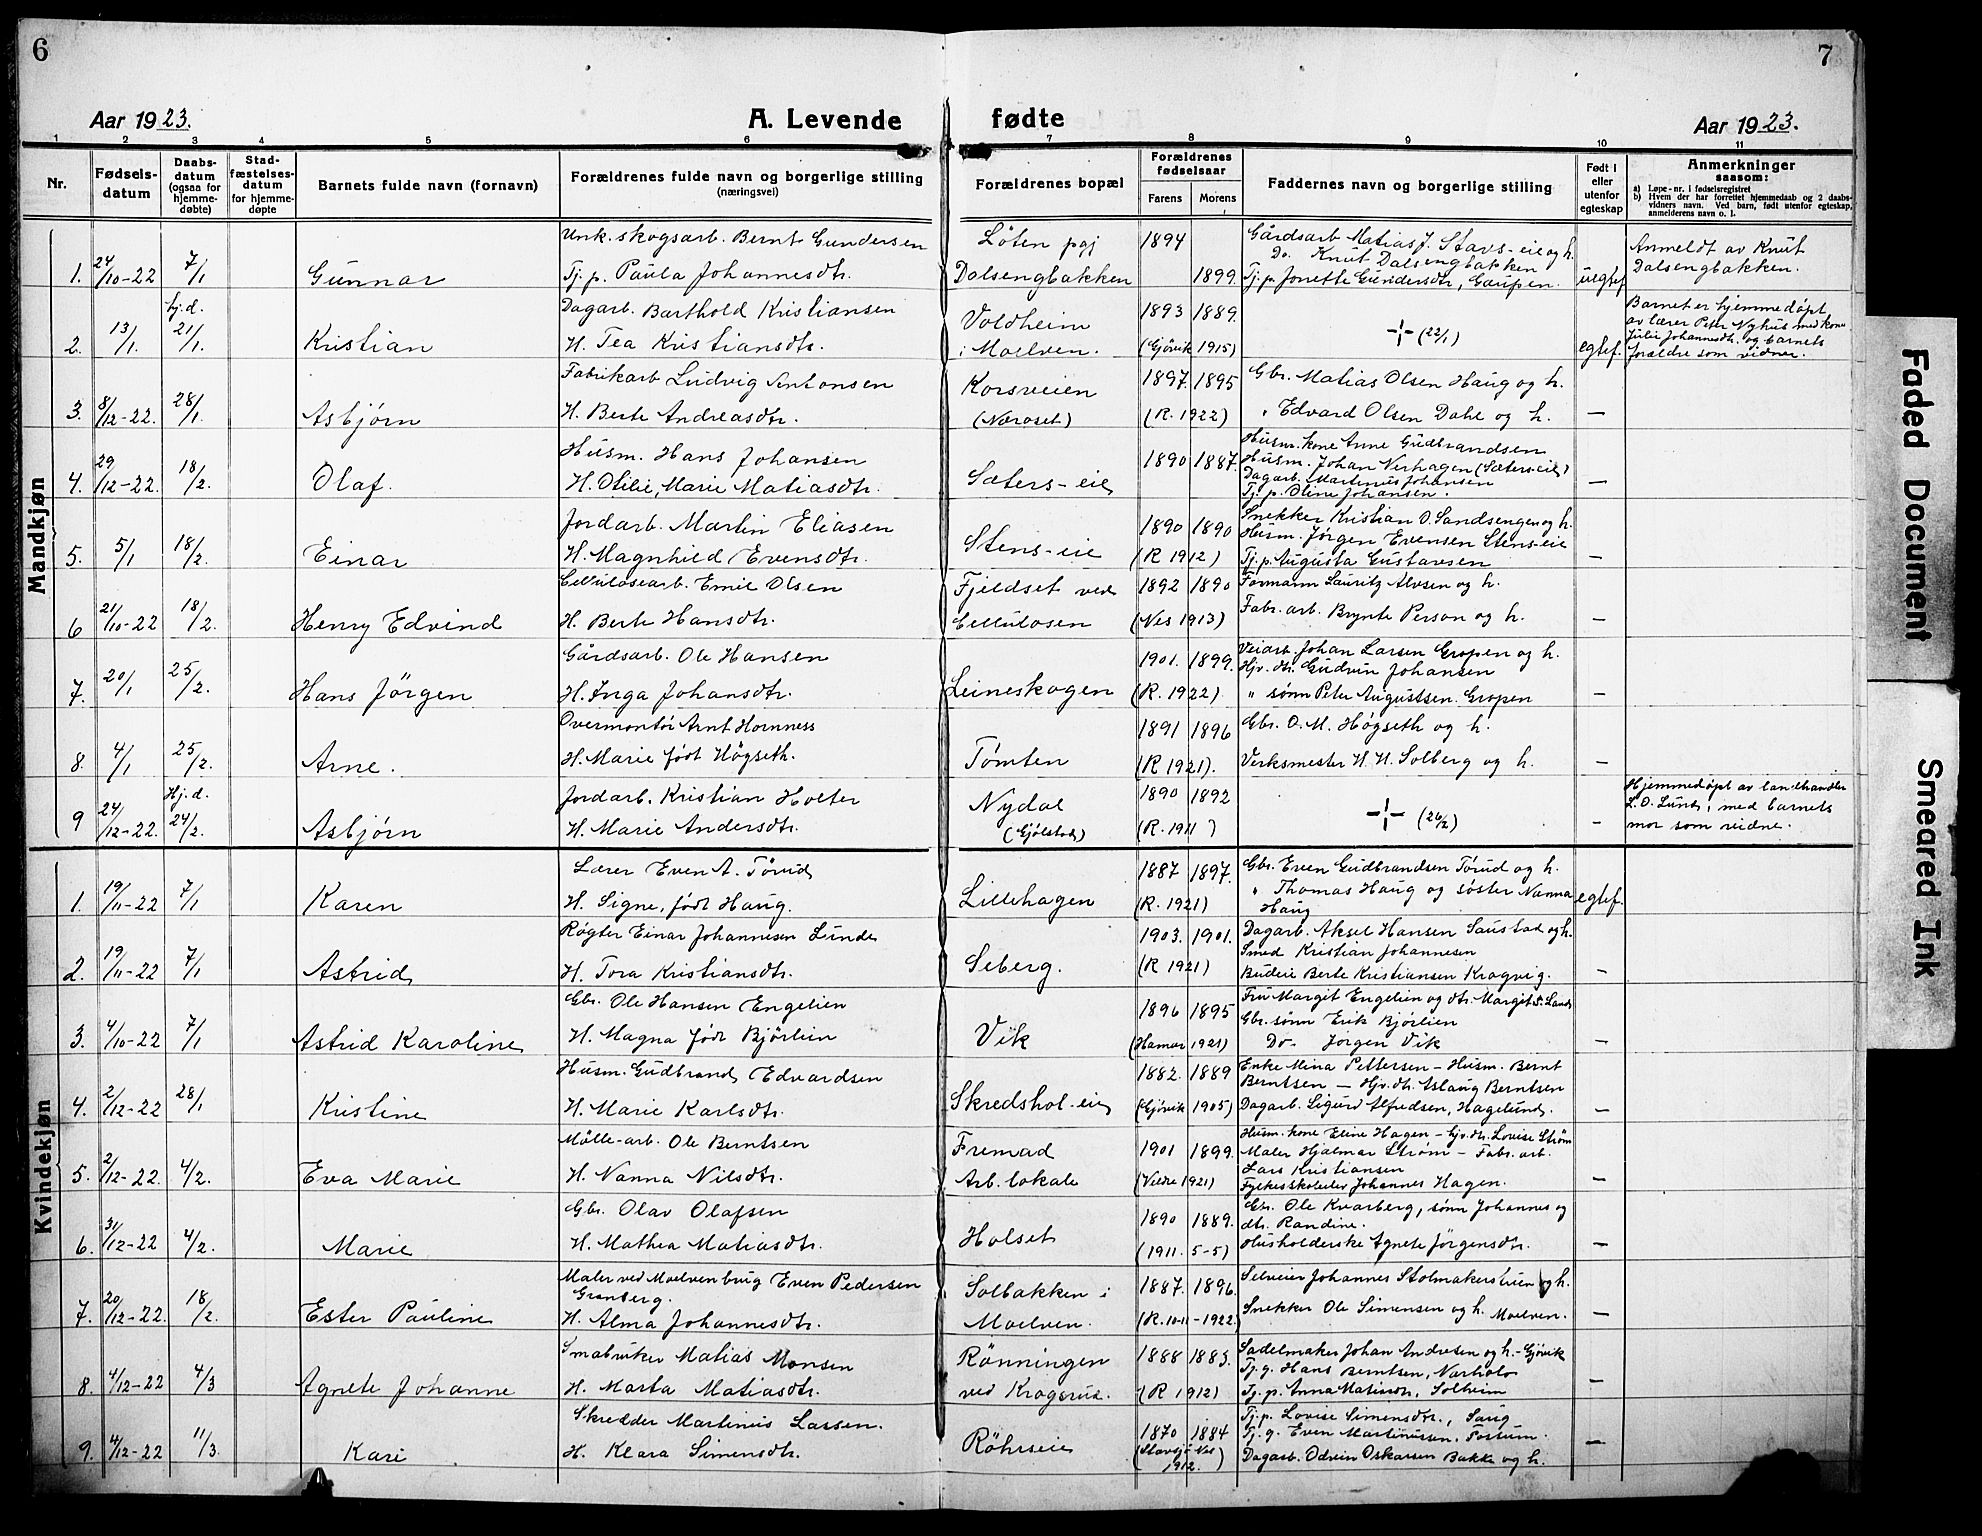 6
7
Aar 1923.
A. Levende fødte
Aar 1923.
1 2 3 4 5 6 7 8 9 10 11
Nr.
Fødsels-
datum
Daabs-
datum
(ogsaa for
hjemme-
døbte)
Stad-
fæstelses-
datum
for hjemme-
døpte
Barnets fulde navn (fornavn)
Forældrenes fulde navn og borgerlige stilling
(næringsvei)
Forældrenes bopæl
Forældrenes
fødselsaar
Farens Morens
Faddernes navn og borgerlige stilling
Født i
eller
utenfor
egteskap
Anmerkninger
saasom:
a) Løpe-nr. i fødselsregistret
b) Hvem der har forrettet hjemmedaab og 2 daabs-
vidners navn. Ved barn, født utenfor egteskap,
anmelderens navn o. l.
Mandkjøn
1. 24/10-22 7/1 Gunnar
Unk. skogsarb. Bernt Gundersen
Tj. p. Paula Johannesdtr.
Løten pgj
Dalsengbakken
1894 1899
Gårdsarb. Matias J. Stavs-eie og h.
Do. Knut Dalsengbakken
Tj. p. Jonette Gundersdtr, Gaupen.
uegtef.
Anmeldt av Knut
Dalsengbakken.
2. 13/1. hj.d. 21/1. Kristian
Dagarb. Barthold Kristiansen
H. Tea Kristiansdtr.
Voldheim
i Moelven.
1893 1889.
(Gjøvik 1915)
-¦- (22/1)
egtef.
Barnet er hjemmedøpt
av lærer Peter Nyhus med kone
Julie Johannesdtr. og barnets
forældre som vidner.
3. 8/12-22. 28/1. Asbjørn
Fabrikarb Ludvig Antonsen
H. Berte Andreasdtr.
Korsveien
(Næroset)
1897. 1895
(R. 1922)
Gbr. Matias Olsen Haug og h.
" Edvard Olsen Dahl og h.
—
4. 29/12-22. 18/2. Olaf.
Husm. Hans Johansen
H. Otilie, Marie Matiasdtr.
Sæters-eie
1890 1887.
Husm. kone Anne Gudbrandsen
Husm. Johan Nerhagen (Sæters-eie)
Dagarb. Martinius Johansen
Tj. p. Oline Johansen.
—
5. 5/1 18/2. Einar
Jordarb. Martin Eliasen
H. Magnhild Evensdtr.
Stens-eie
1890 1890
(R 1912)
Snekker Kristian O. Sandsengen og h.
Husm. Jørgen Evensen Stens-eie
Tj. p. Augusta Gustavsen
—
6 21/10-22 18/2. Henry Edvind
Cellulosearb. Emil Olsen
H. Berte Hansdtr.
Fjeldset ved
Cellulosen
1892 1890
(Nes 1913)
Formann Lauritz Alvsen og h.
Fabr. arb. Brynte Person og h.
—
7. 20/1 25/2. Hans Jörgen
Gårdsarb. Ole Hansen
H. Inga Johansdtr.
Leineskogen
1901. 1899.
(R. 1922)
Veiarb. Johan Larsen Gropen og h.
Hjv. dtr. Gudrun Johansen
" sønn Peter Augustsen Gropen
—
8. 4/1 25/2. Arne.
Overmontör Arnt Hornness
H. Marie født Högseth.
Tømten
1891 1896
(R 1921).
Gbr. O. M. Høgseth og h.
Verksmester H. H. Solberg og h.
—
9 24/12-22. Hj.d. 24/2. Asbjørn
Jordarb. Kristian Holter
H. Marie Andersdtr.
Nydal
(Gjølstad)
1890 1892
(R. 1911)
-¦- (26/2)
-
Hjemmedøpt av landhandler
L. O. Lund, med barnets
mor som vidne.
Kvindekjøn
1. 19/11-22 7/1 Karen
Lærer Even A. Tørud
H. Signe, født Haug.
Lillehagen
1887 1897.
(R. 1921)
Gbr. Even Gudbrandsen Tørud og h.
" Thomas Haug og søster Nanna
Haug
egtef.
2. 19/11-22 7/1 Astrid
Røgter Einar Johannesen Lunde
H. Tora Kristiansdtr.
Seberg.
1903. 1901.
(R 1921)
Dagarb. Aksel Hansen Saustad og h.
Smed Kristian Johannesen
Budeie Berte Kristiansen Kragvig.
—
3. 4/10-22 7/1 Astrid Karoline
Gbr. Ole Hansen Engelien
H. Magna født Bjørlien
Vik
1896 1895
(Hamar 1921)
Fru Margit Engelien og dtr. Margit S. Land
Gbr. sønn Erik Bjørlien
Do- Jørgen Vik
—
4. 2/12-22 28/1 Kristine
Husm. Gudbrand Edvardsen
H. Marie Karlsdtr.
Skredshol-eie
1882. 1889
(Gjøvik 1905)
Enke Mina Pettersen - Husm. Bernt
Berntsen - Hjv. dtr. Aslaug Berntsen
Dagarb. Sigurd Alfredsen, Hagelund.
—
5. 2/12-22. 4/2. Eva Marie
Mölle-arb. Ole Berntsen
H. Nanna Nilsdtr.
Fremad
Arb. lokale
1901 1899.
(Veldre 1921)
Husm. kone Eline Hagen - hjv. dtr. Lovise Strøm
Maler Hjalmar Strøm - Fabr. arb.
Lars Kristiansen
Fylkesskoleelev Johannes Hagen.
—
6. 31/12-22 4/2. Marie
Gbr. Olav Olafsen
H. Mathea Matiasdtr.
Holset
1890 1889.
(1911. 5-5)
Gbr. Ole Kvarberg, sønn Johannes og
dtr. Randine.
Husholderske Agnete Jørgensdtr.
—
7. 20/12-22. 18/2. Ester Pauline
Maler ved Moelven brug Even Pedersen
Granberg.
H. Alma Johannesdtr.
Solbakken i
Moelven.
1887. 1896.
(R. 10-11-1922)
Selveier Johannes Stolmakerstuen og h.
Snekker Ole Simensen og h. Moelven.
—
8. 4/12-22 4/3 Agnete Johanne
Småbruker Matias Monsen
H. Marta Matiasdtr.
Rönningen
ved Kragsrud.
1888 1883.
(R 1912)
Sadelmaker Johan Andresen og h. - Gjøvik
Tj. g. Hans Berntsen, Nærholo
Tj. p. Anna Matisson, Solheim
—
9. 4/12-22 11/3. Kari
Skredder Martinius Larsen.
H. Klara Simensdtr.
Röhrseie
1870 1884
1912.
Tj. p. Lovise Simensdtr., Saug
Tj. g. Even Martinussen, Fossum.
Dagarb. Odvin Oskarsen Bakke og h.
—
Faded Document
Smeared Ink